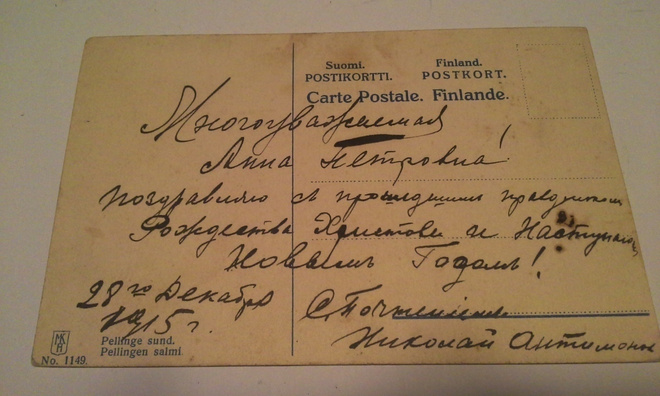 Suomi. Finland.
POSTIKORTTI. POSTKORT.
Carte Postale. Finlande.
Многоуважаемая
Анна Петровна!
поздравляю съ прошедшимъ праздником
Рождества Христова и Наступающ
Новымъ Годомъ!
28го Декабря
1915 г.
С Почтением
Николай Антимоно
Pellinge sund.
Pellingen salmi.
No. 1149.